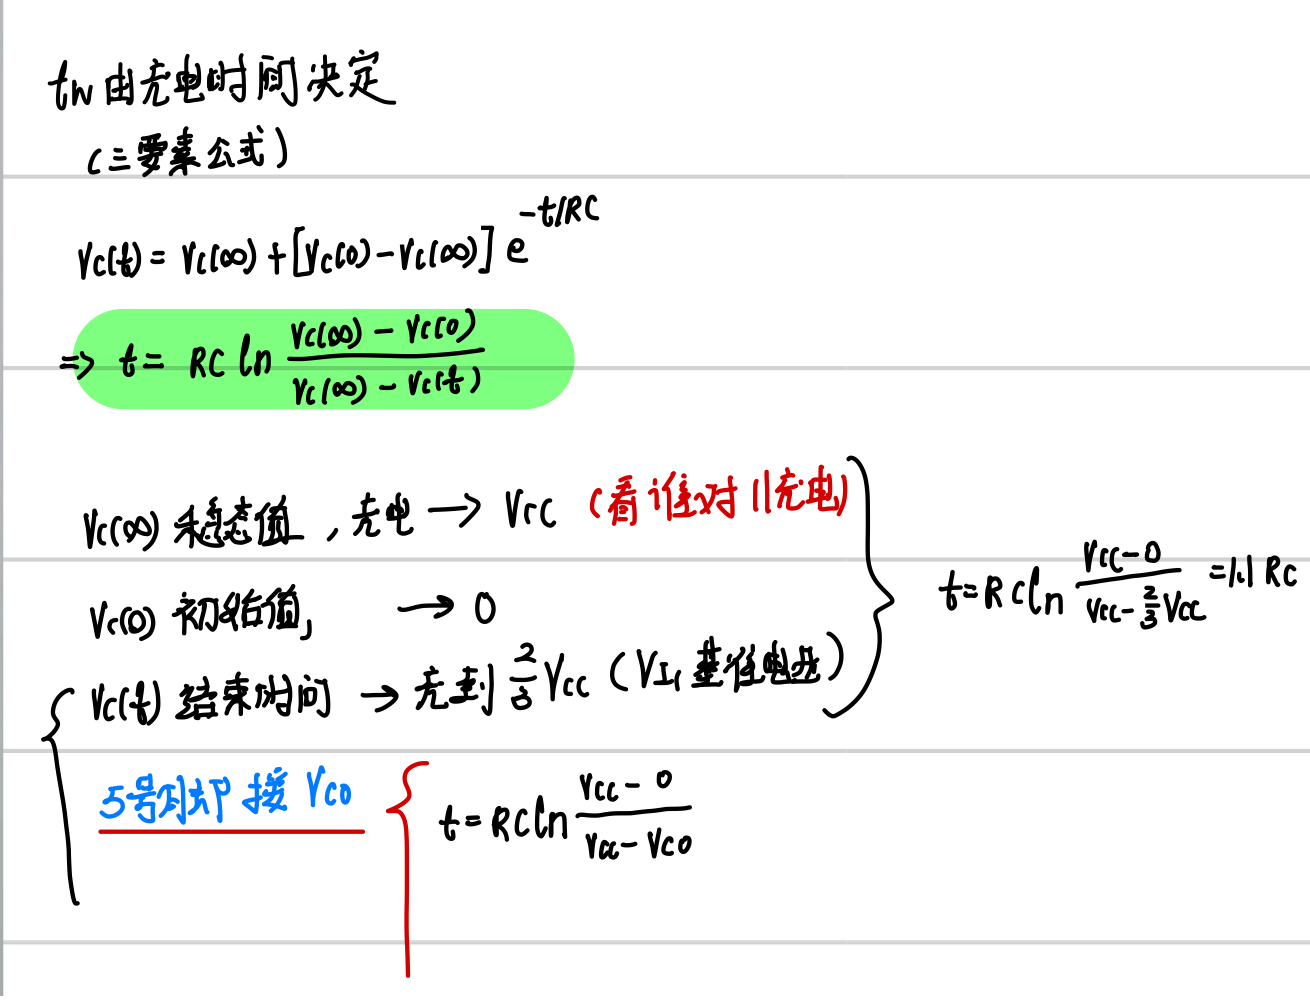 tw由充电时间决定
(三要素公式)
Vc(t) = Vc(∞) + [Vc(0) - Vc(∞)] e^{-t/RC}
=> t = RC ln (Vc(∞) - Vc(0)) / (Vc(∞) - Vc(t))
Vc(∞) 稳态值, 充电 → Vcc (看谁对它充电)
Vc(0) 初始值, → 0
Vc(t) 结束时间 → 充到 2/3 Vcc (VI1 基准电压)
t = RC ln (Vcc - 0) / (Vcc - 2/3 Vcc) = 1.1 RC
5号脚接 Vco
t = RC ln (Vcc - 0) / (Vcc - Vco)